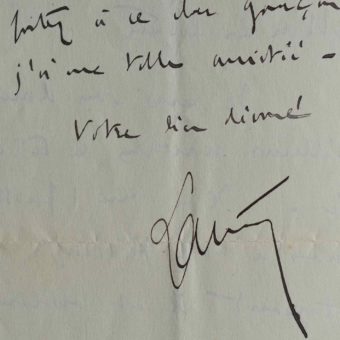 à ce cher garçon
j'ai une telle amitié –
Votre bien dévoué